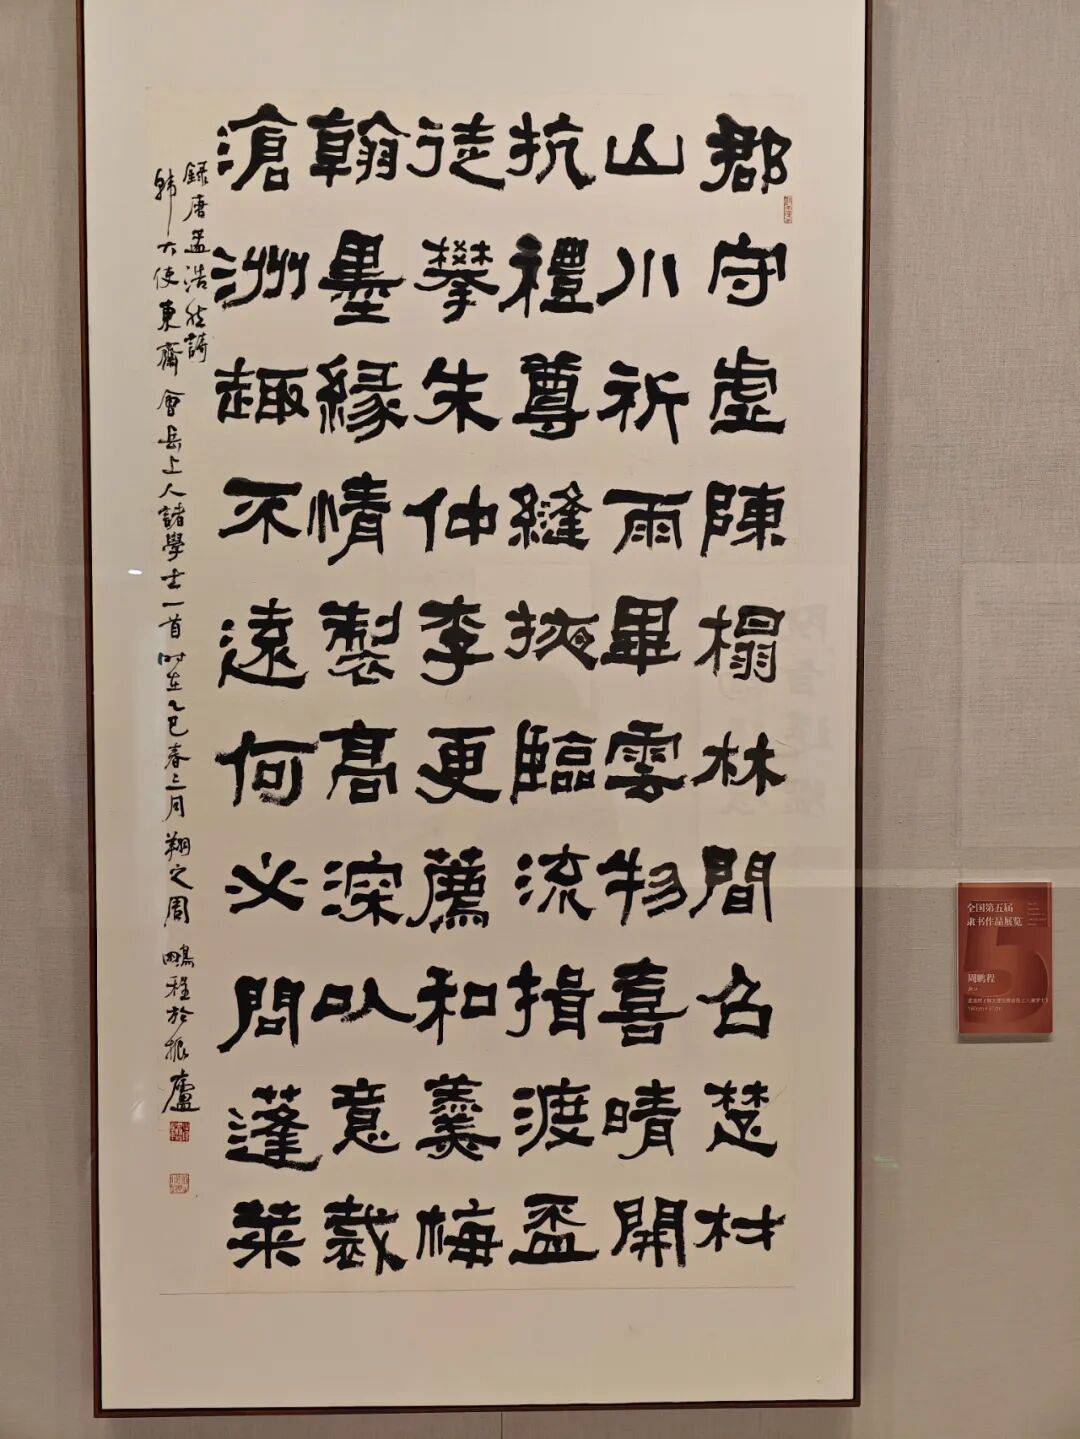 郡守虚陳榻林間召楚材
山川祈雨畢雲物喜晴開
抗禮尊縫掖臨流揖渡盃
徒攀朱仲李更薦和羹梅
翰墨緣情製高深以意裁
滄洲趣不遠何必問蓬萊
録唐孟浩然詩
韩大使東齋會岳上人諸學士一首時在乙巳春三月翔之周鵬程於振廬
全国第五届
隶书作品展览
周鹏程